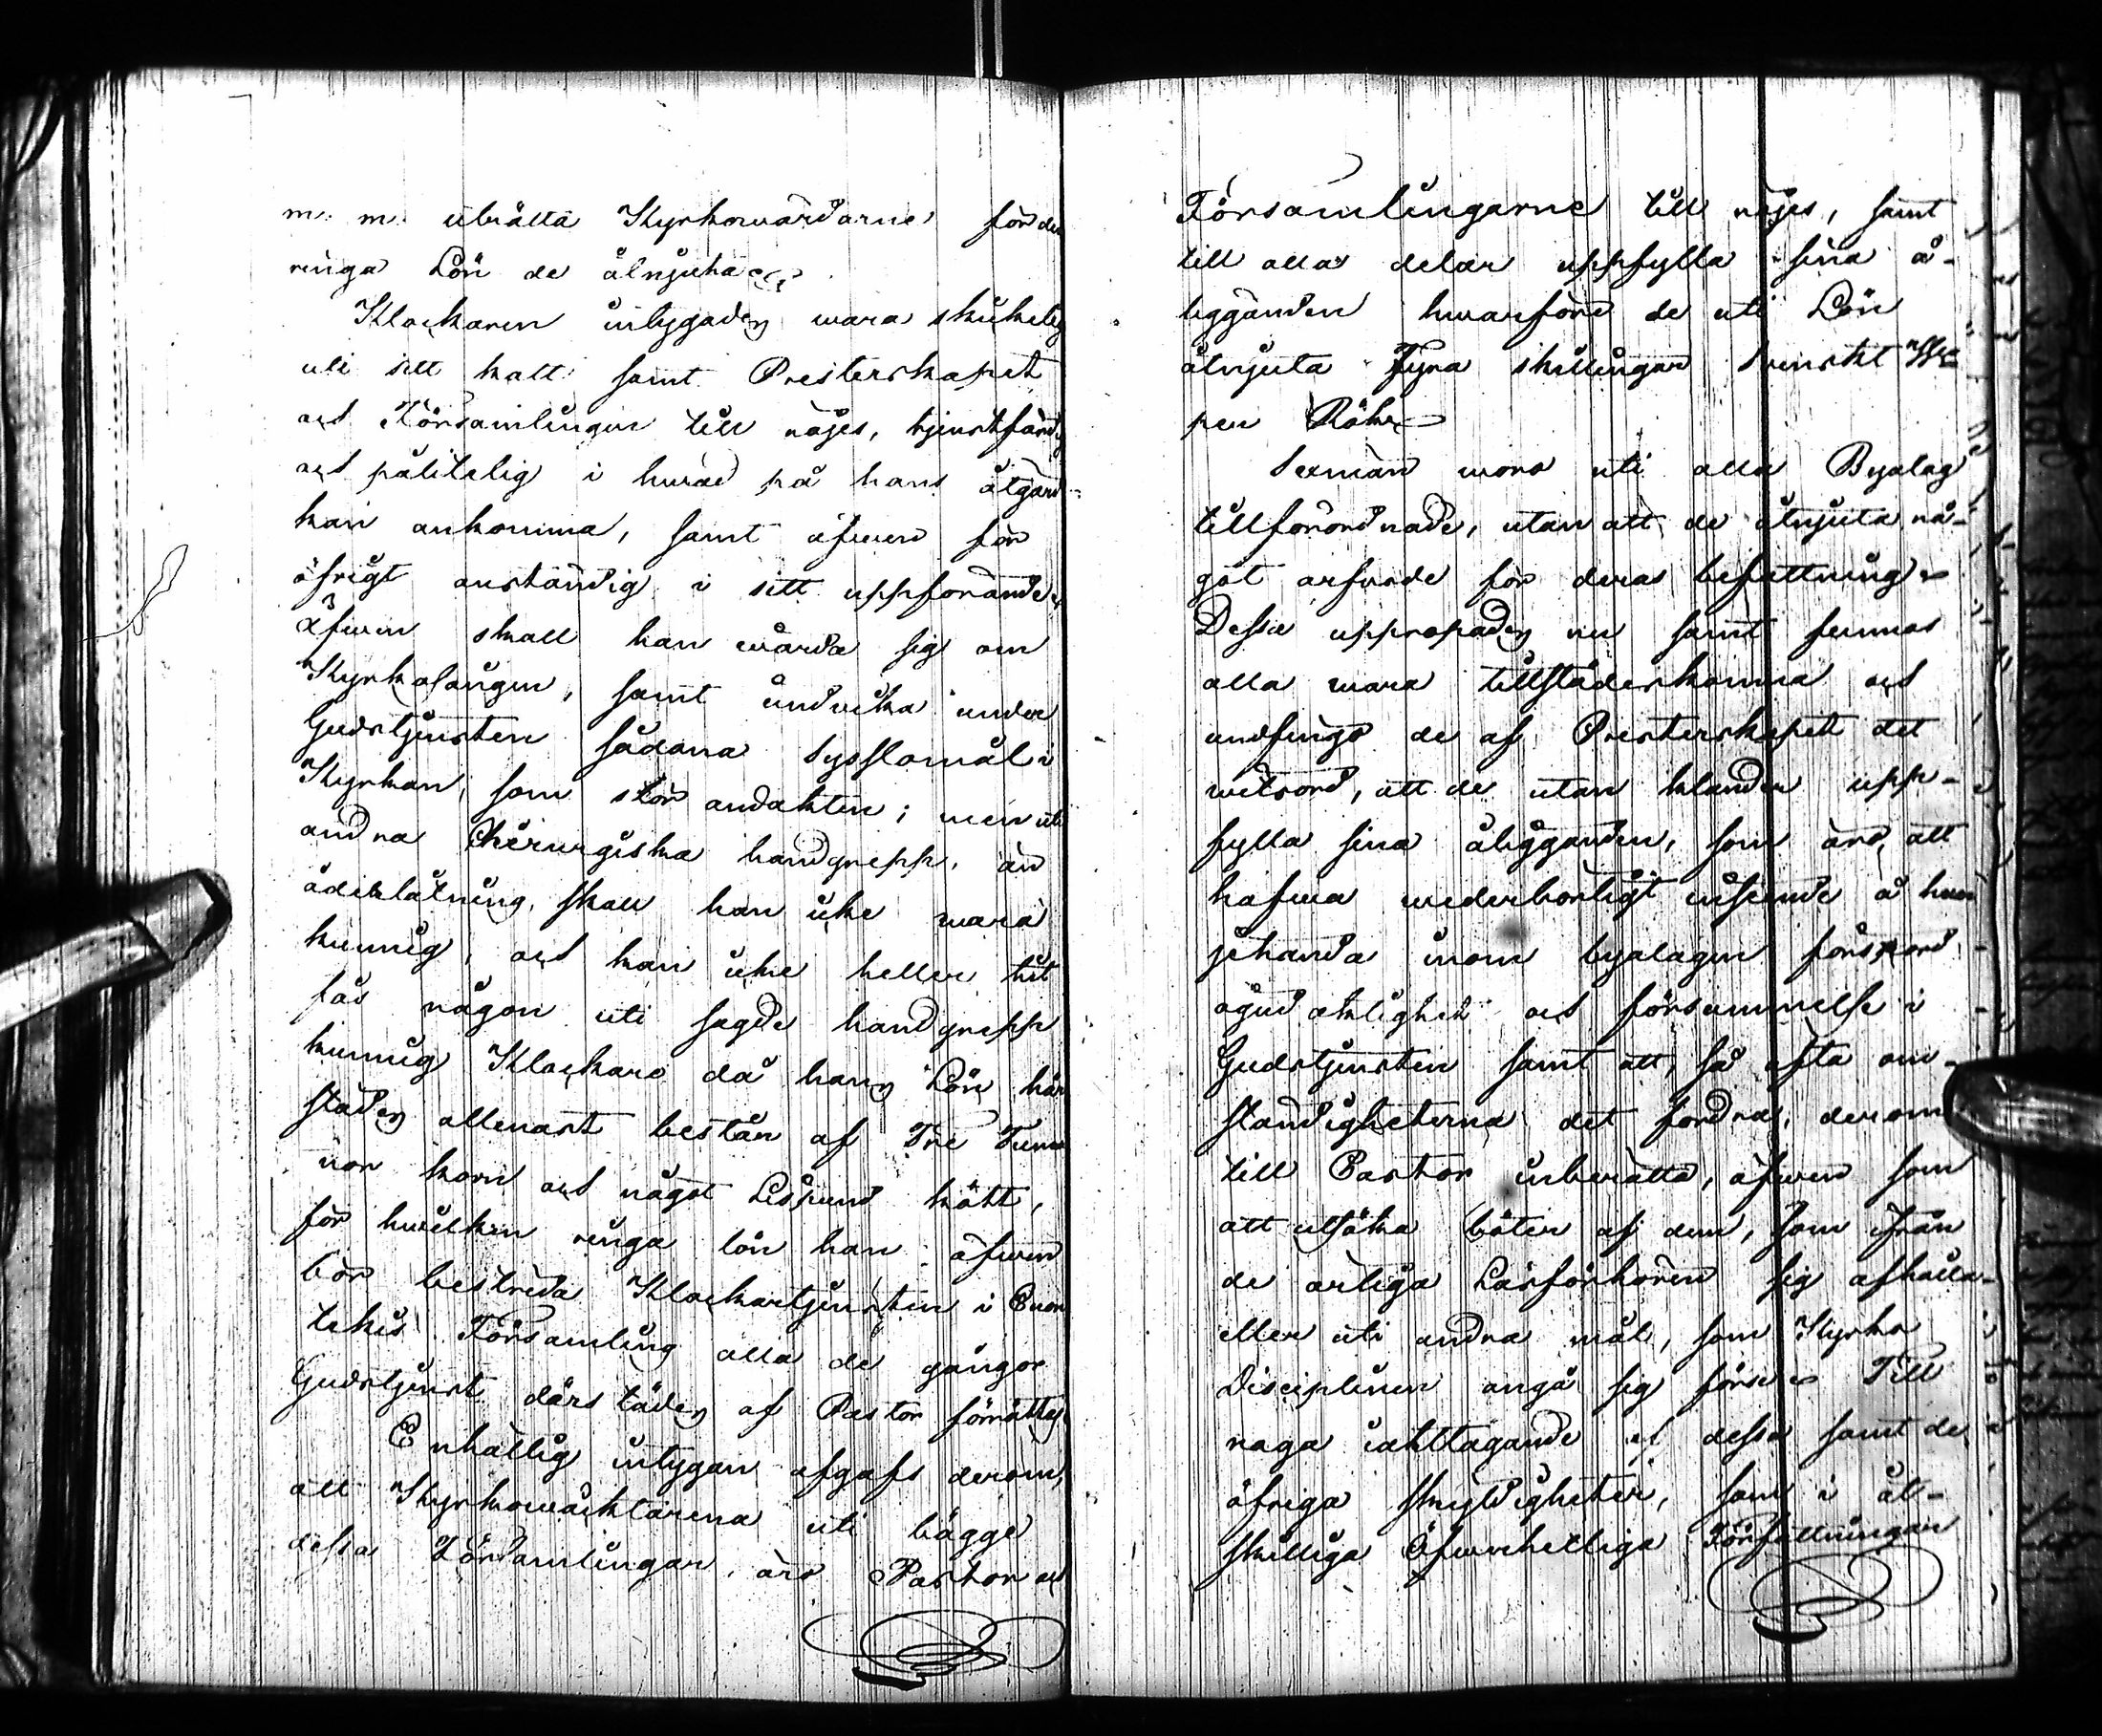 m. m. uträtta Kyrkowärdarne för den
ringa Lön de åtnjuta
Klockaren intygades wara skickelig
uti sitt kall samt Presterskapet
och Församlingen till nöjes, tjenstfärdig
och pålitelig i hwad på hans åtgärd
kan ankomma, samt äfwen för
öfrigt anständig i sitt uppförande
äfwen skall han wårda sig om
Kyrkosången, samt undwika under
Gudstjensten sådana sysslomål i
Kyrkan, som stör andakten; men uti
andra Chirurgiska handgrepp, än
åderlåtning, skall han icke wara
kunnig, och kan icke heller hit
fås någon uti sagde handgrepp
kunnig Klockare då hans Lön här
städes allenast består af Tre Tun-
nor korn och något Lispund kött,
för hwilken ringa lön han äfwen
bör bestrida Klockartjensten i Enon
tekis Församling alla de gånger
Gudstjenst därstädes af Pastor förrättas
Enhällig intygan afgafs derom,
att Kyrkowäktarena uti bägge
dessa Församlingar, äro Pastor och
Församlingarne till nöjes, samt
till alla delar uppfylla sina å-
ligganden hwarföre de uti Lön
åtnjuta Fyra skillingar Swenskt
per Rök
Sexmän woro uti alla Byalag
tillförordnade, utan att de åtnjuta nå-
got arfwode för deras befattning
Dessa uppropades nu samt funnos
alla wara tillstädeskomna och
undfingo de af Presterskapet det
witsord, att de utan klander upp-
fylla sina åligganden, som äro, att
hafwa wederbörligt inseende å hwar
jehanda inom byalagen försport
ogudaktighet och försummelse i
Gudstjensten samt att, så ofta om-
ständigheterna det fordra, derom
till Pastor inberätta, äfwen som
att utsöka böter af dem, som ifrån
de årliga Läsförhören sig afhålla
eller uti andra mål, som Kyrko
Disciplinen angå sig förse Till
noga iakttagande af dessa samt de
öfriga skyldigheter, som i åt-
skilliga Öfwerhetliga Författningar